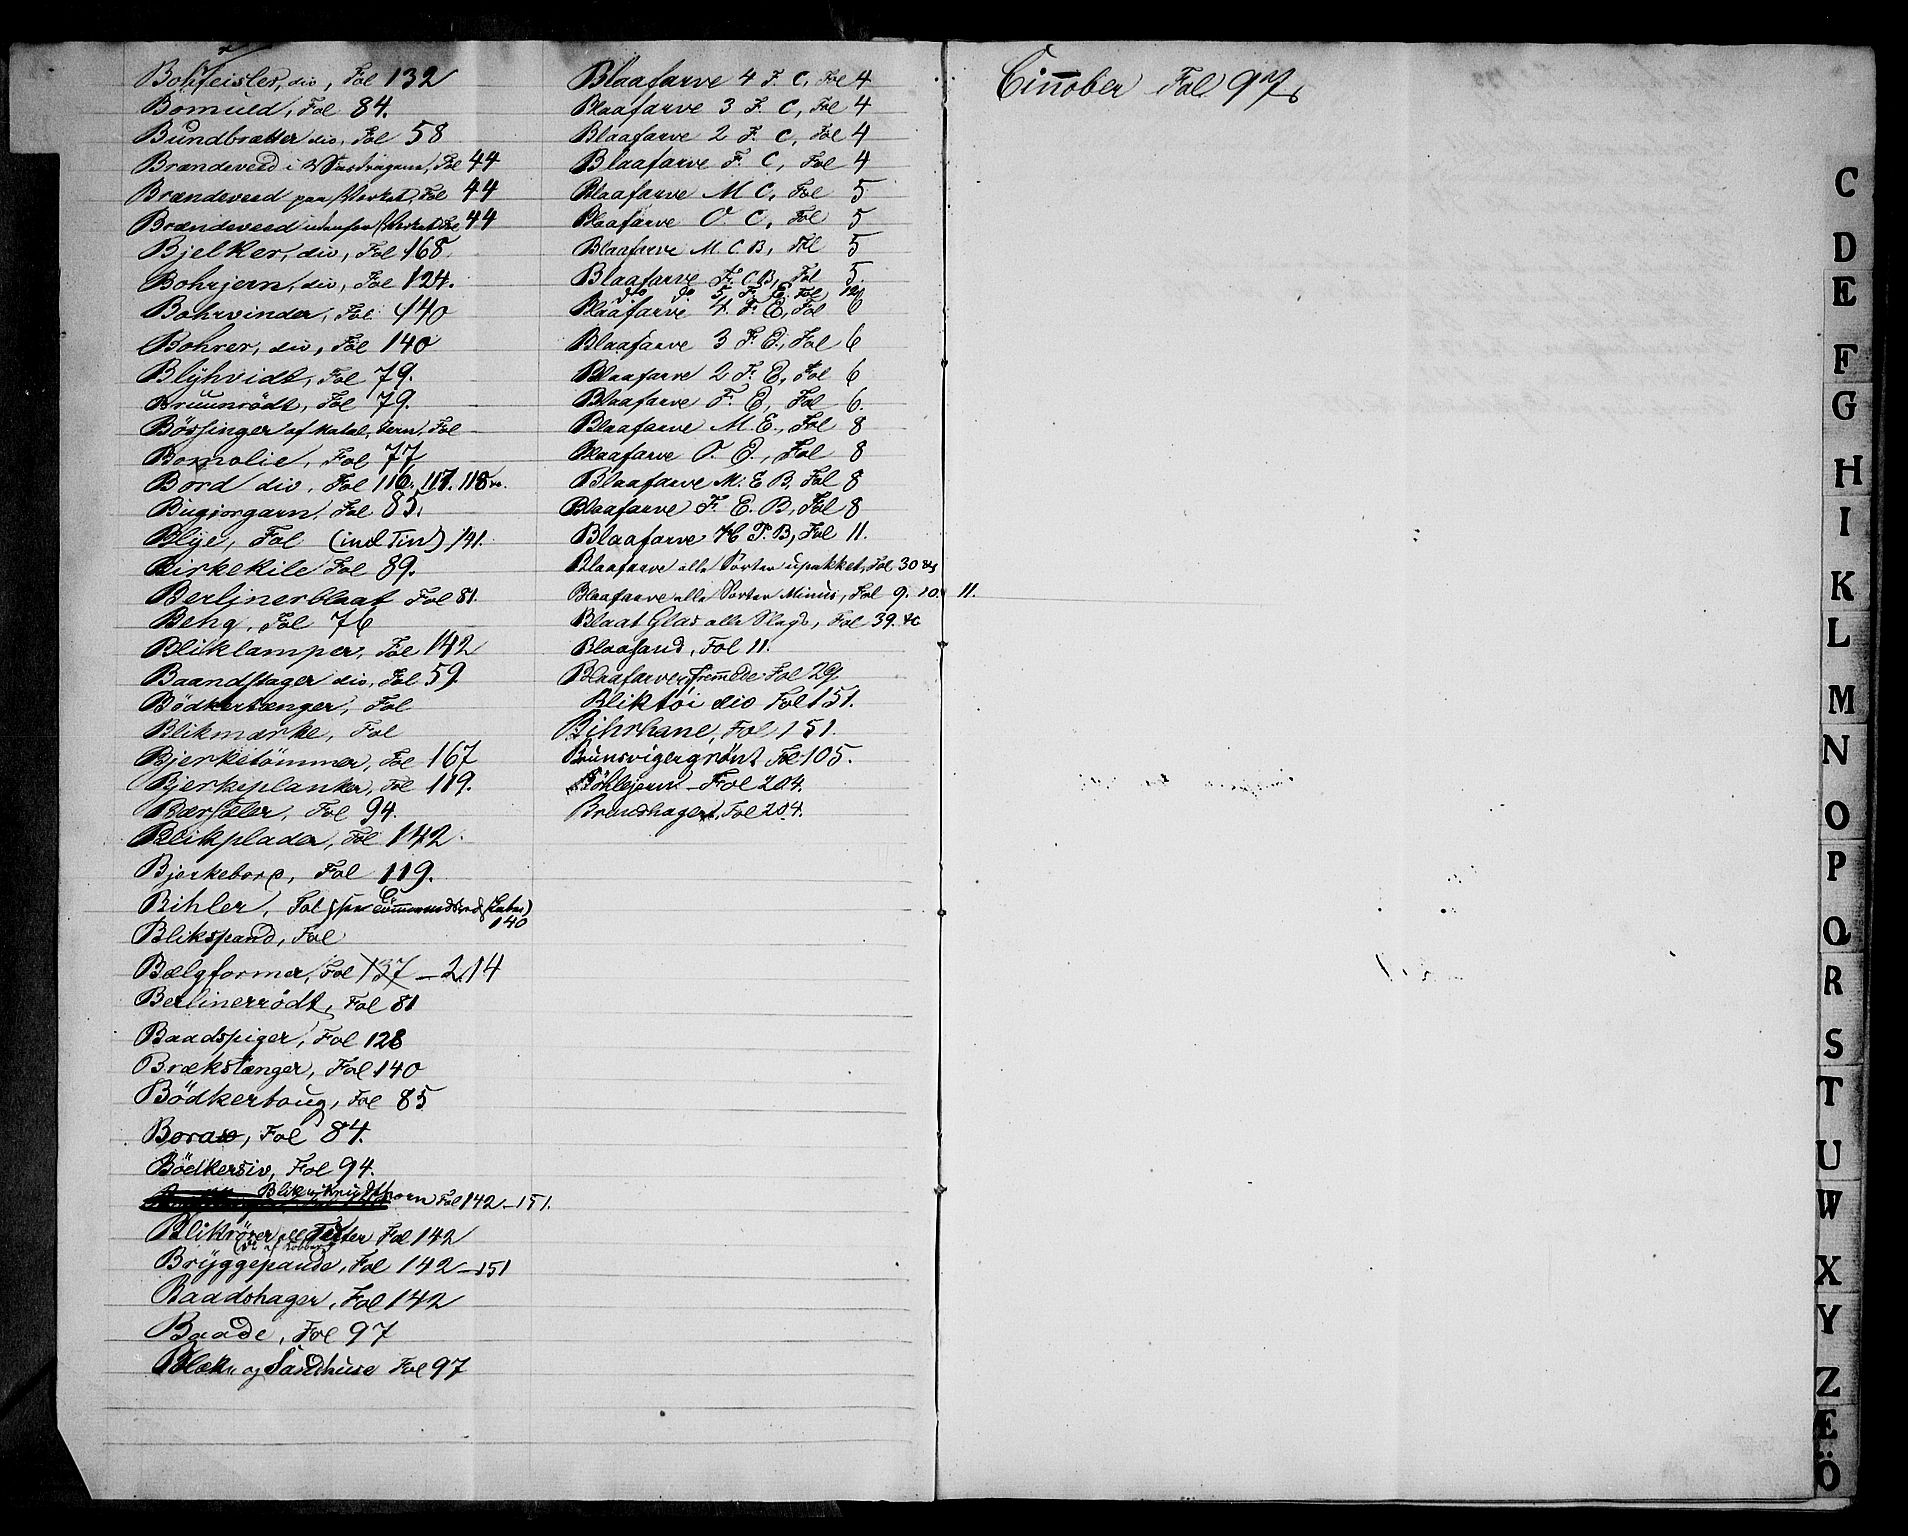 Bohfeisler, div, Fol 132
Bomuld, Fol 84.
Bundbrætter div, Fol 58
Brændeveed i Fol 44
Brændeveed paa Værket, Fol 44
Brændeveed udenfor Værket Fol 44
Bjelker, div, Fol 168.
Bohrjern, div, Fol 124.
Bohrvinder, Fol 140
Bohrer, div, Fol 140
Blyhvidt, Fol 79.
Bruunrödt, Fol 79.
Bösfinger af Metal, Jern, Fol
Bomolie, Fol 77
Bord div, Fol 116. 117. 118
Bugjorgarn, Fol 85.
Blye, Fol (incl Tin) 141.
Birkekile Fol 89.
Berlinerblaat Fol 81.
Behg, Fol 76
Bliklamper, Fol 142
Baandstager div, Fol 59
Bödkertænger, Fol
Blikmærke, Fol
Bjerketömmer, Fol 167
Bjerkeplanker, Fol 119.
Bærseler, Fol 94.
Blikplader, Fol 142.
Bjerkebord, Fol 119.
Bihler, Fol
140
Blikspand, Fol
Bælgformer, Fol 137 — 214
Berlinerrödt, Fol 81
Baadspiger, Fol 128
Brækstænger, Fol 140
Bödkertoug, Fol 85
Borax, Fol 84.
Bödkersiv, Fol 94.
Blik Fol 142 — 151.
Blikrörer Fol 142
(af Kobber)
Bryggepande, Fol 142 — 151
Baadshager, Fol 142
Baade, Fol 97
Blæk- og Sandhuse Fol 97
Blaafarve 4 F. C, Fol 4
Blaafarve 3 F. C, Fol 4
Blaafarve 2 F. C, Fol 4
Blaafarve F. C, Fol 4
Blaafarve M. C, Fol 5
Blaafarve O. C, Fol 5
Blaafarve M. C. B, Fol 5
Blaafarve F. C B, Fol 5
do do 5 F. E, Fol 121
Blaafarve 4 F. E, Fol 6
Blaafarve 3 F. E, Fol 6
Blaafarve 2 F. E, Fol 6
Blaafarve F. E, Fol 6.
Blaafarve M. E., Fol 8
Blaafarve O. E., Fol 8
Blaafarve M. E B, Fol 8
Blaafarve F. E. B, Fol 8
Blaafarve H T. B, Fol 11.
Blaafarve alle Sorter upakket, Fol 30
Blaafarve alle Sorter Minus, Fol 9. 10. 11.
Blaat Glas alle Slags, Fol 39. 40
Blaasand, Fol 11.
Blaafarve, fremmede Fol 29
Bliktöi div Fol 151.
Bihrhane, Fol 151.
Brunsvigergrönt Fol 105.
Böhlejern — Fol 204.
Brandhager, Fol 204.
Cinnober Fol 97
C
D
E
F
G
H
I
K
L
M
N
O
P
Q
R
S
T
U
W
X
Y
Z
E
Ö